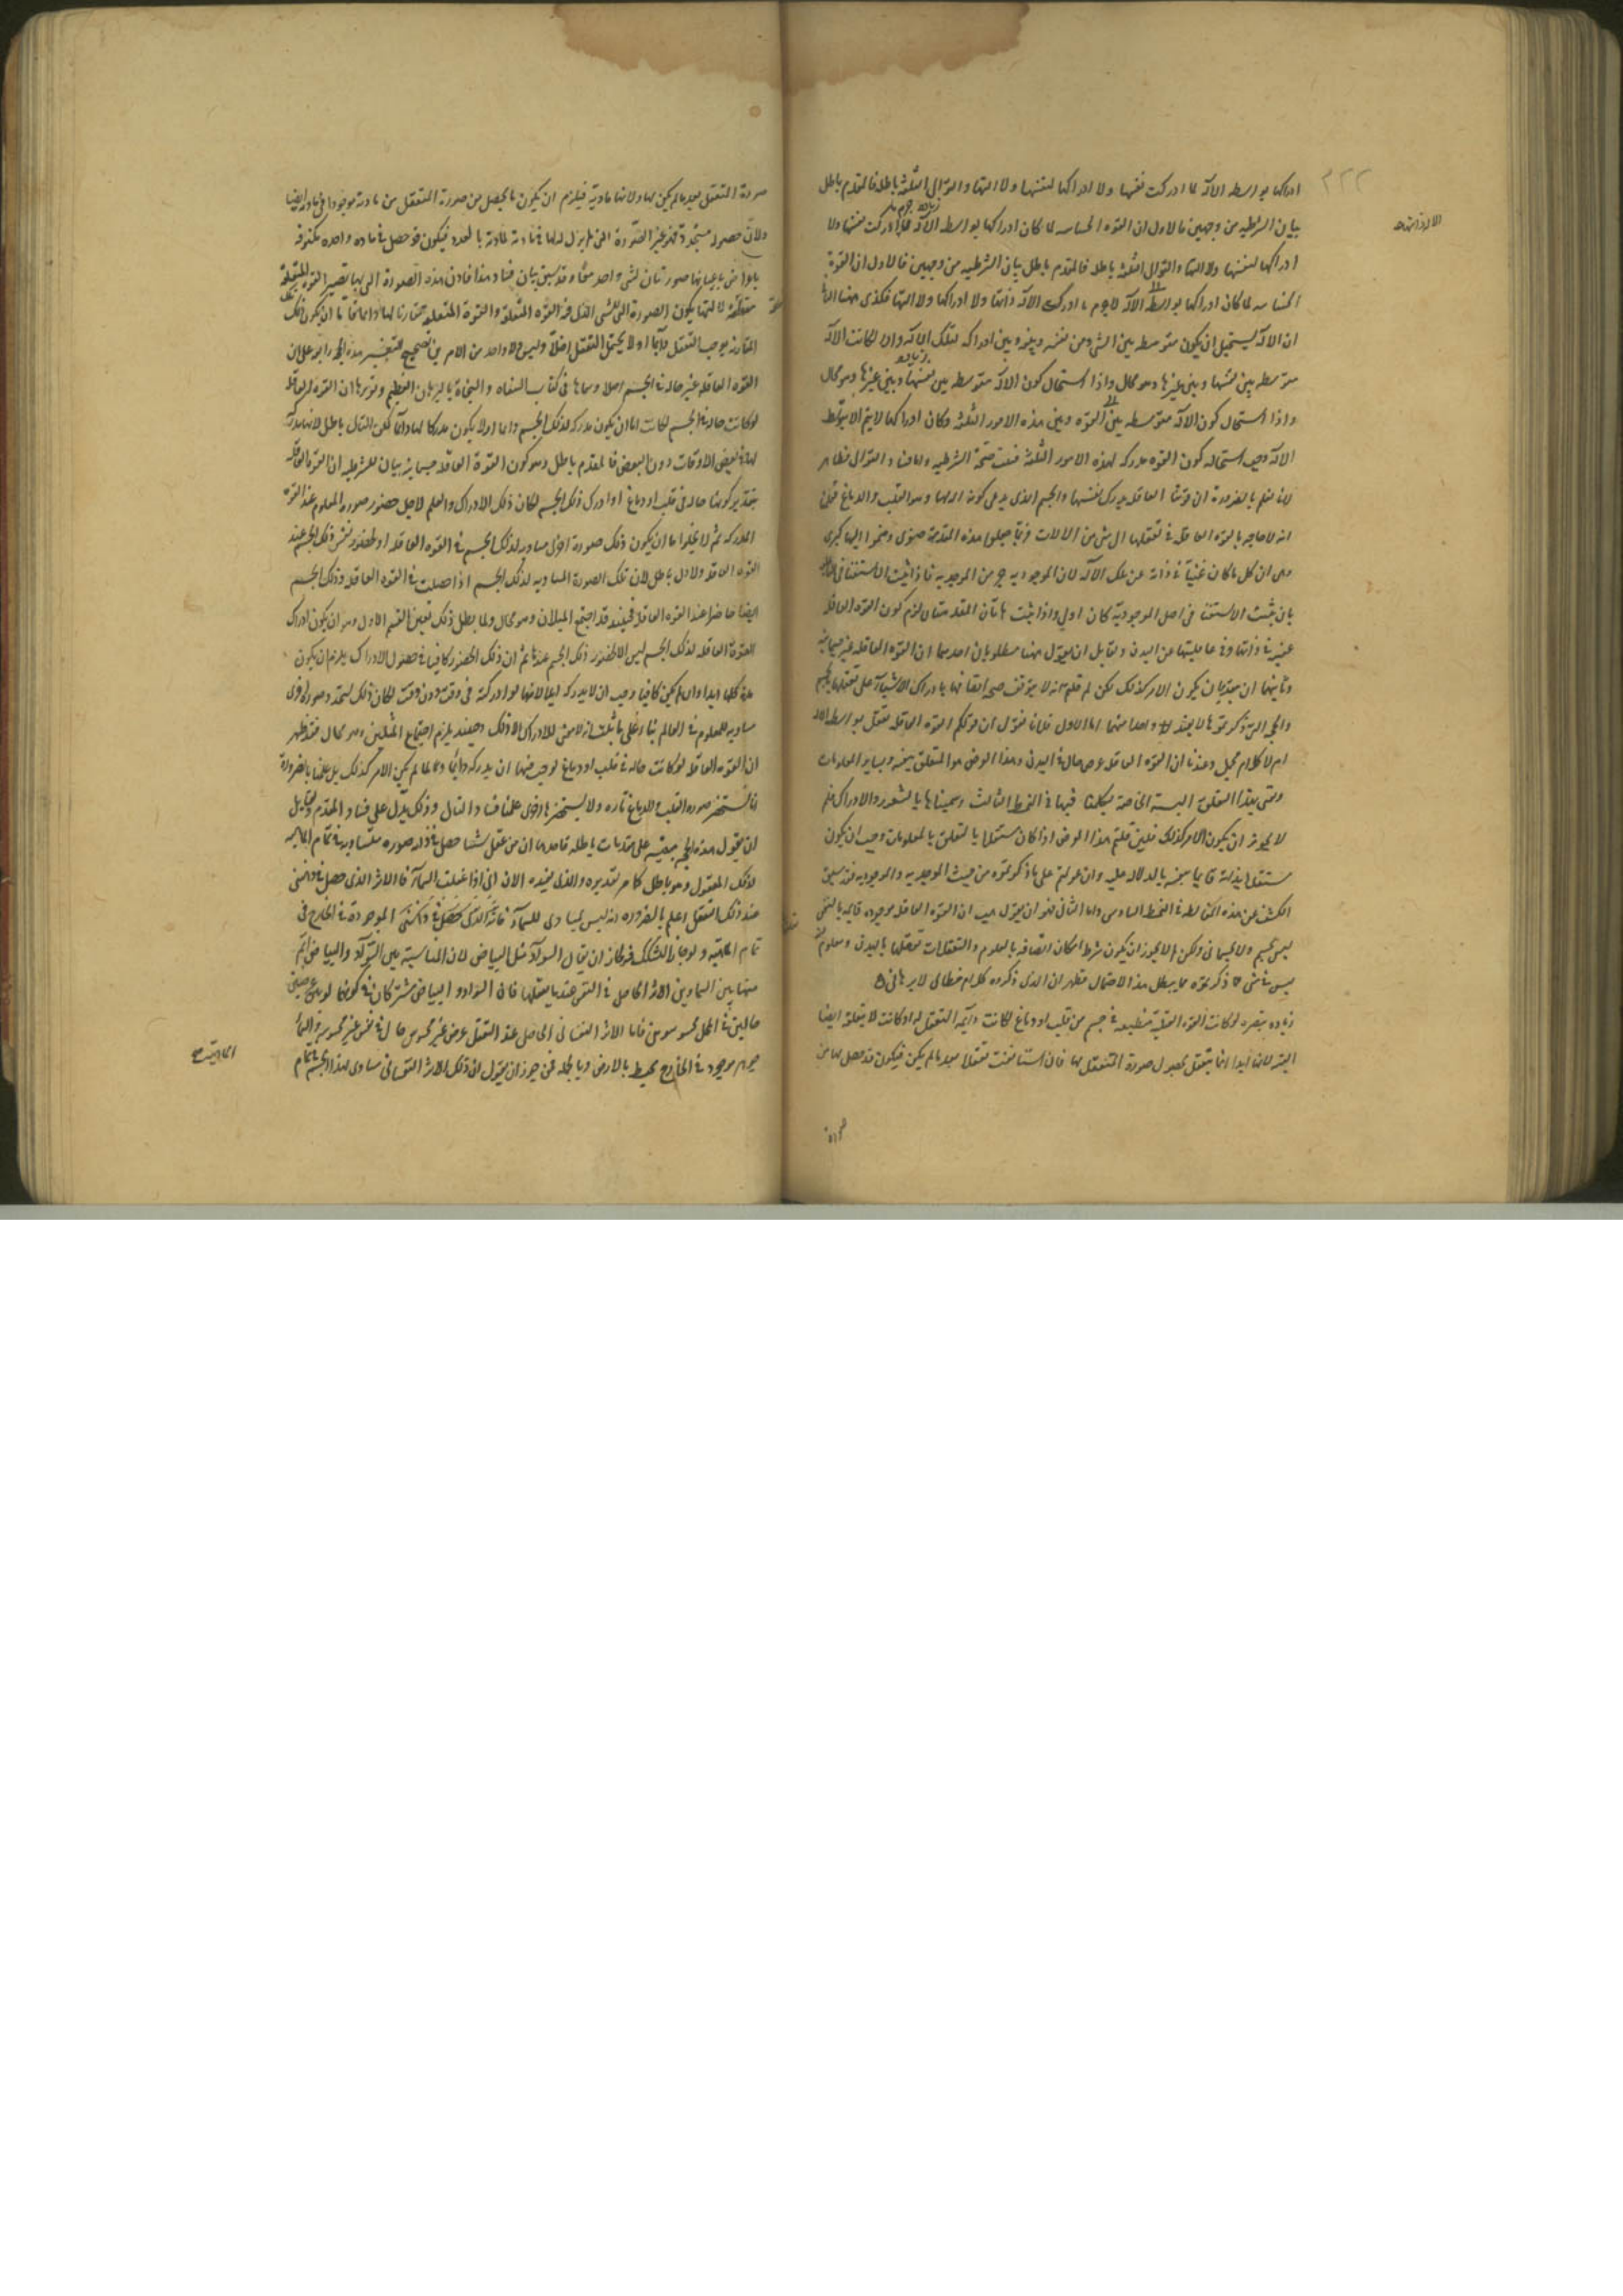 ٢٢٢
ادراكها بواسطه الالة لما ادركت نفسها ولا ادراكها لنفسها ولا التها والتوالى الثلثة باطلة فالمقدم باطل
بيان الشرطيه من وجهين فالاول ان القوه الحساسه لما كان ادراكها بواسطه الالة ادركت نفسها ولا
ادراكها لنفسها ولا التها والتوالى الثلثة باطله فالمقدم باطل بيان الشرطيه من وجهين فالاول ان القوة
الحساسه لما كان ادراكها بواسطة الالة لاجرم ما ادركت الالة ذاتها ولا ادراكها ولا التها فكذى هنا
ان الالة يستحيل ان يكون متوسطه بين الشى ومن نفسه وبينه وبين ادراكه لتلك الالة والا لكانت الالة
متوسطه بين نفسها وبين غيرها وهو محال واذا استحال كون الالة متوسطه بين نفسها وبين غيرها وهو محال
واذا استحال كون الالة متوسطه بين القوه وبين هذه الامور الثلثه وكان ادراكها لا يتم الا بتوسط
الالة وجب استحاله كون القوه مدركه لهذه الامور الثلثة فثبت صحة الشرطيه واما فساد التوالى فظاهر
لانا نعلم بالضرورة ان قوتنا العاقله يدرك نفسها والجسم الذى يدعى كونه الة لها وهو القلب والدماغ فثبت
انه لا حاجه بالقوه العاقله فى تعقلها الى شى من الالات وربما جعلوا هذه المقدمة صغرى وضموا اليها كبرى
وهى ان كل ما كان غنيا فى ذاته عن تلك الالة لان الموجوديه جزء من الموجديه فاذا ثبت الاستغنا فى
بان يثبت الاستغنا فى اصل الموجودية كان اولى واذا ثبت هاتان المقدمتان لزم كون القوه العاقله
غنيه فى ذاتها وفى فاعليتها عن البدن ولقايل ان يقول هنا مطلوبان احدهما ان القوه العاقله غير جسمانيه
وثانيهما ان بتقدير ان يكون الامر كذلك لكن لم قلتم انه لا يتوقف صحه اتصافها بادراك الاشيآء على تعلقها بالجسم
والحجه التى ذكرتموها لا يفيد واحدا منهما اما الاول فلانا نقول ان قولكم القوه العاقله تعقل بواسطه الالة
ام لا كلام مجمل وعندنا ان القوه العاقله عرض حال فى البدن وهذا العرض هو المتعلق بنفسه وبساير المعلومات
وهى هذا التعلق النسبه الخاصة تكلمنا فيها فى النمط الثالث وسميناها بالشعور والادراك فلم
لا يجوز ان يكون الامر كذلك فلئن قلتم هذا العرض اذا كان مستقلا بالتعلق بالمعلومات وجب ان يكون
مستقلا بذاته قايما بنفسه بالدلاله عليه وان عولتم على ما ذكرتموه من حيث الموجديه والموجوديه فقد سبق
الكشف عن هذه المغالطه فى النمط السادس واما الثانى فهو ان يقول هب ان القوه العاقله موجوده قايمه بالنفس
ليس بجسم ولا جسمانى ولكن لم لا يجوز ان يكون شرط امكان اتصافه بالعلوم والتعقلات تعلقها بالبدن ومعلوم ان
ليس فى شى مما ذكرتموه ما يبطل هذا الاحتمال فظهر ان الذى ذكروه كلام خطابى لا برهانى ه
زياده تبصره لو كانت القوه العقلية منطبعه فى جسم من قلب او دماغ لكانت دايمة التعقل له او كانت لا يتعقله ايضا
البته لانها ابدا انما يتعقل بحصول صورة المتعقل لها فان استانفت تعقلا بعد ما لم يكن فيكون قد حصل لها من
صورة المتعقل بعد ما لم يكن لها ولانها مادية فيلزم ان يكون ما يحصل من صورة المتعقل من مادته موجودا فى مادته ايضا
ولان حصوله متجدد فهو غير الصورة التى لم يزل لها فى مادته لمادته بالعدد فيكون قد حصل فى ماده واحده مكنوفه
باعراض باعيانها صورتان لشى واحد معا وقد سبق بيان فساد هذا فاذن هذه الصورة التى بها تصير القوه المتعقلة
متعقلة لالتها يكون الصورة التى للشى الذى فيه القوه المتعقلة والقوة المتعقلة مقارنا لها دايما فاما ان يكون تلك
المقارنه يوجب التعقل دآيما او لا يحتمل التعقل اصلا وليس ولا واحد من الامرين بصحيح التفسير هذه الحجه رابعه على ان
القوه العاقله غير حاله فى الجسم اصلا وسماها فى كتاب الشفاه والنجاة بالبرهان العظيم وتقريرها ان القوه العاقله
لو كانت حالة فى الجسم لكانت اما ان يكون مدركه لذلك الجسم دايما او لا يكون مدركا لها دآيما لكن التالى باطل لانها مدركة
لها فى بعض الاوقات دون البعض فالمقدم باطل وهو كون القوة العاقله جسمانيه بيان الشرطيه ان القوه العاقله
بتقدير كونها حاله فى قلب او دماغ لو ادرك ذلك الجسم لكان ذلك الادراك والعلم لاجل حضور صوره المعلوم عند القوه
المدركه ثم لا يخلوا اما ان يكون ذلك صورة اخرى مساويه لذلك الجسم فى القوه العاقله او لحضور نفس ذلك الجسم عند
القوه العاقله والاول باطل لان تلك الصورة المساويه لذلك الجسم اذا حصلت فى القوه العاقله وذلك الجسم
ايضا حاضر عند القوه العاقله فحينئذ قد اجتمع المثلان وهو محال ولما بطل ذلك تعين القسم الاول وهو ان يكون ادراك
القوة العاقله لذلك الجسم ليس الا لحضور ذلك الجسم عندها ثم ان ذلك الحضور كافيا فى حصول الادراك يلزم ان يكون
مدركا لها ابدا وان لم يكن كافيا وجب ان لا يدركه ايضا لانها لو ادركته فى وقت دون وقت لكان ذلك لتجدد صورة اخرى
مساويه للمعلوم فى العالم بنا على ما ثبت انه لا معنى للادراك الا ذلك وحينئذ يلزم اجتماع المثلين وهو محال فقد ظهر
ان القوه العاقله لو كانت حاله فى قلب او دماغ لوجب فيها ان يدركه دايما ولما لم يكن الامر كذلك بل علمنا بالضرورة
انا نستحضر صوره القلب والدماغ تاره ولا نستحضرها اخرى علمنا فساد التالى وذلك يدل على فساد المقدم ولقايل
ان يقول هذه الحجه مبنيه على مقدمات باطله فاحدها ان من عقل شيئا حصل فى ذاته صوره متساويه فى تمام الماهيه
لذلك المعقول وهو باطل كما مر تقديره والذى نفيده الان انى اذا عقلت السمآء فالاثر الذى حصل فى ذهنى
عند ذلك التعقل اعلم بالضروره انه ليس بمساوى للسمآء الموجودة فى الخارج فى
تمام الماهيه ولو جاز التشكك فيه لكان ان يقال السواد مثل البياض لان المناسبة بين السواد والبياض اتم
منها بين السما وبين الاثر الحاصل فى النفس عند ما يعقلها فان السواد والبياض مشتركان فى كونهما لونين عرضين
حالين فى المحل محسوسين فاما الاثر النفسانى الحاصل عند التعقل عرض غير محسوس حال فى نفس غير محسوسة والسمآ
جوهر موجود فى الخارج محيط بالارض وبالجملة فمن جوز ان يقول ان ذلك الاثر النفسانى مساوى لهذا الجسم فى تمام
الماهية